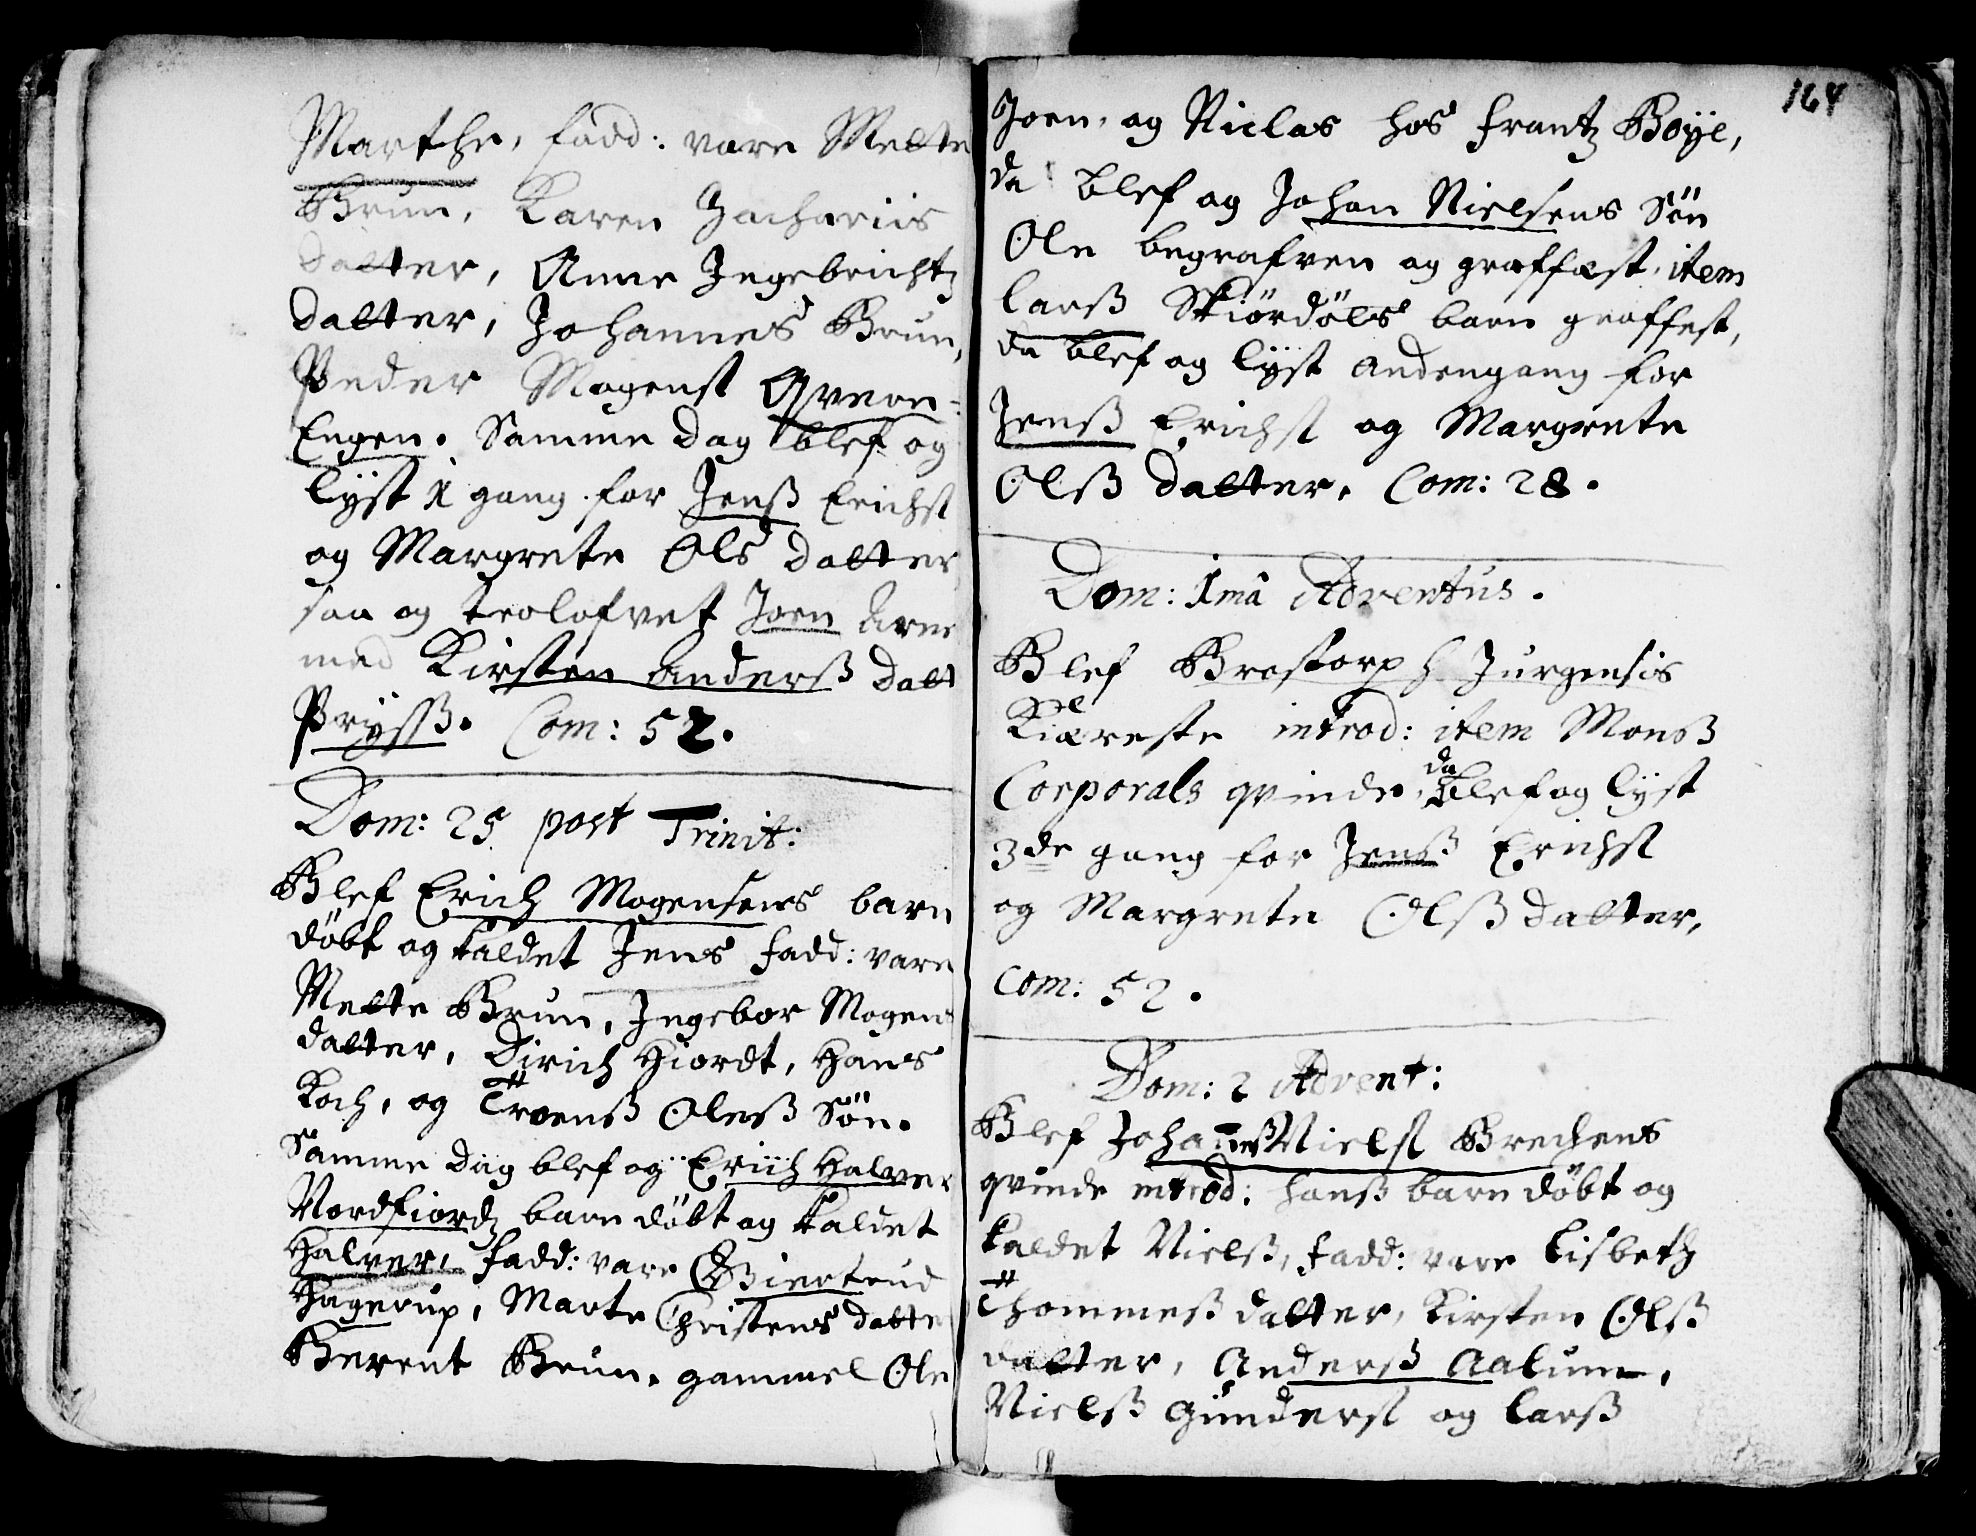 Marthe, fadd: vare Mette
Brun, Karen Zachariis
datter, Anne Ingebrichtz
datter, Johannes Brun,
Peder Mogenst Qvern-
Engen. Samme dag blef og
lyst 1 gang for Jenß Erichst
og Margrete Ols datter
saa og trolofvet Joen Arne
med Kirsten Anderß datt
Prysß. Com: 52.
Dom: 25 post Trinit:
Blef Erich Mogensens barn
döbt og kaldet Jens fadd: vare
Mette Brun, Ingebor Mogens
datter, Dirich Hiordt, Hans
Koch, og Troenß Oleß Sön.
Samme dag blef og Erich Halver
Nordfiordz barn döbt og kaldet
Halver, fadd: vare Giertrud
Hagerup, Marte Christens datte
Berent Brun, gammel Ole
164
Joen, og Niclas hos Frantz Boye,
da blef og Johan Nielsens Sön
Ole begrafven og graffæst, item
Larß Skiördöls barn graffest,
da blef og lyst andengang for
Jenß Erichst og Margrete
Olß datter. Com: 28.
Dom: 1mâ Adventus.
Blef Brostorp h Jurgensis
Kiæreste introd: item Monß
Corporals qvinde, da blef og lyst
3de gang for Jenß Erichst
og Margrete Olß datter,
Com: 52.
Dom: 2 Advent:
Blef Johanneß Nielst Brechens
qvinde introd: hanß barn döbt og
kaldet Nielß, fadd: vare Lisbeth
Thommeß datter, Kirsten Olß
datter, Anderß Aalum,
Nielß Gunderst og Larß